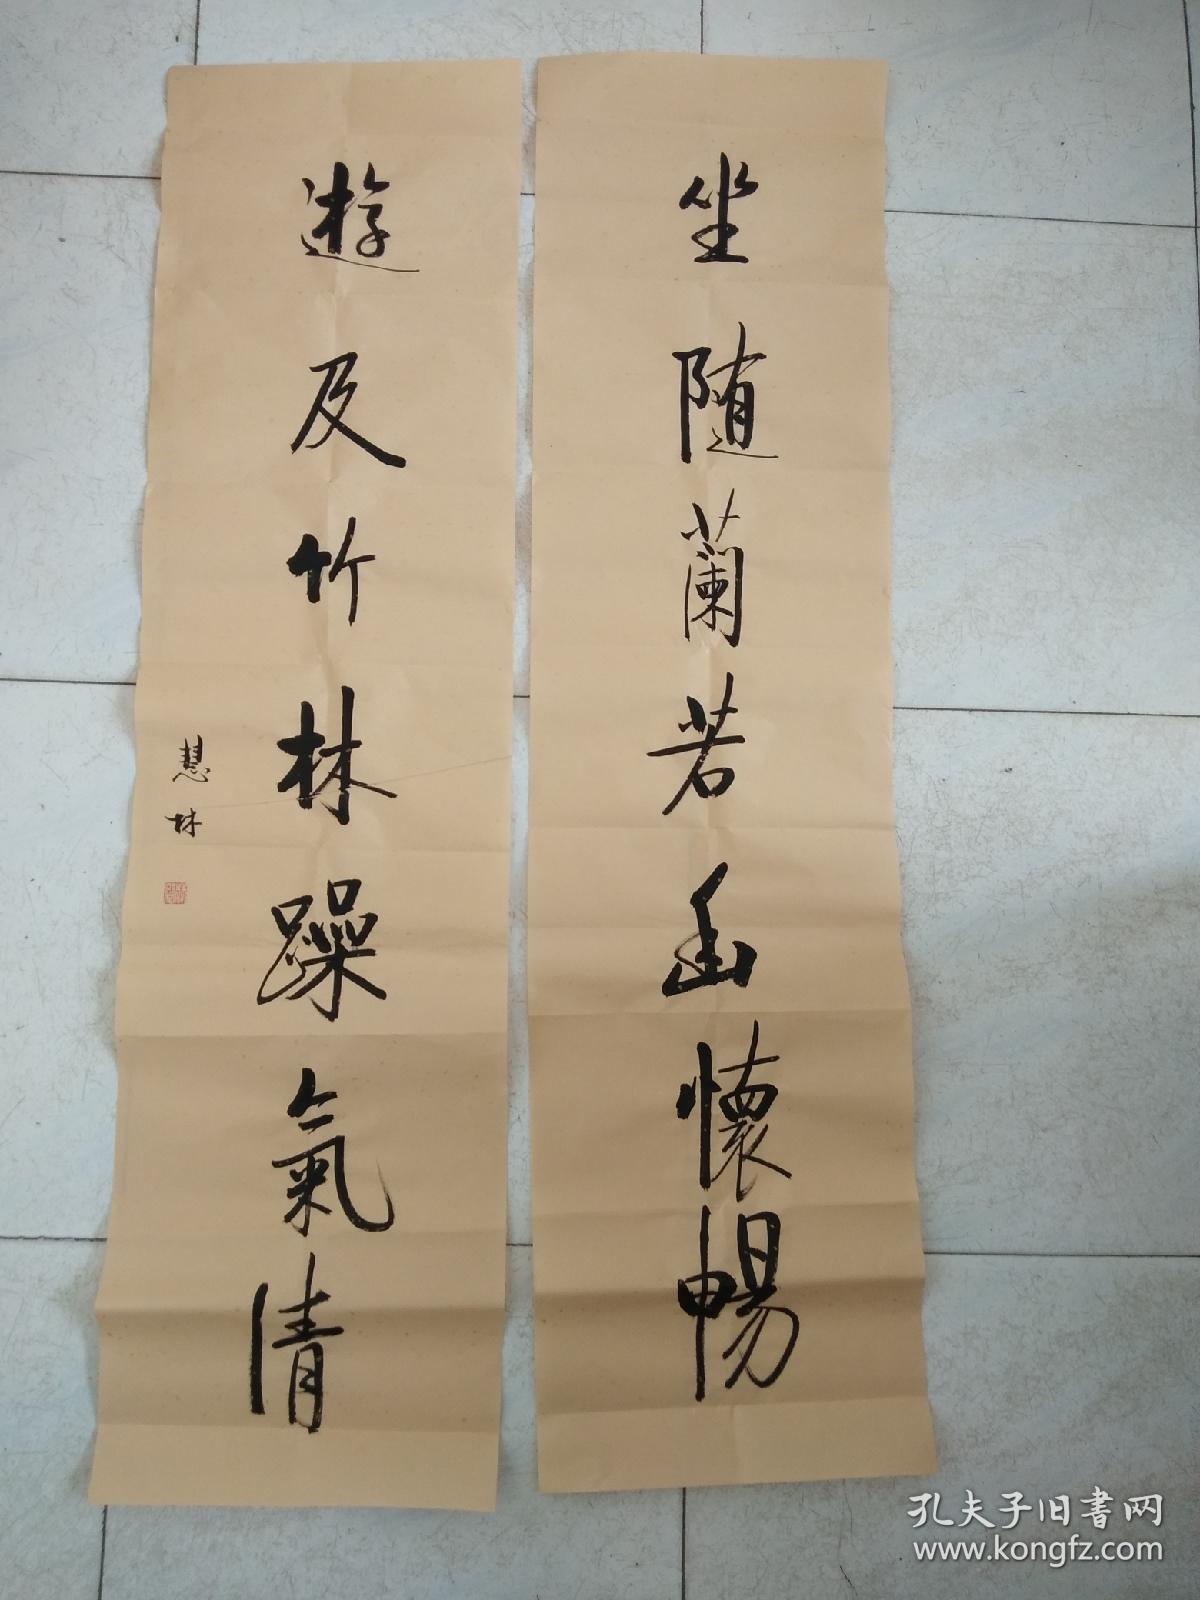 坐随蘭若幽懷暢
遊及竹林躁氣清
慧林
孔夫子旧書网
www.kongfz.com